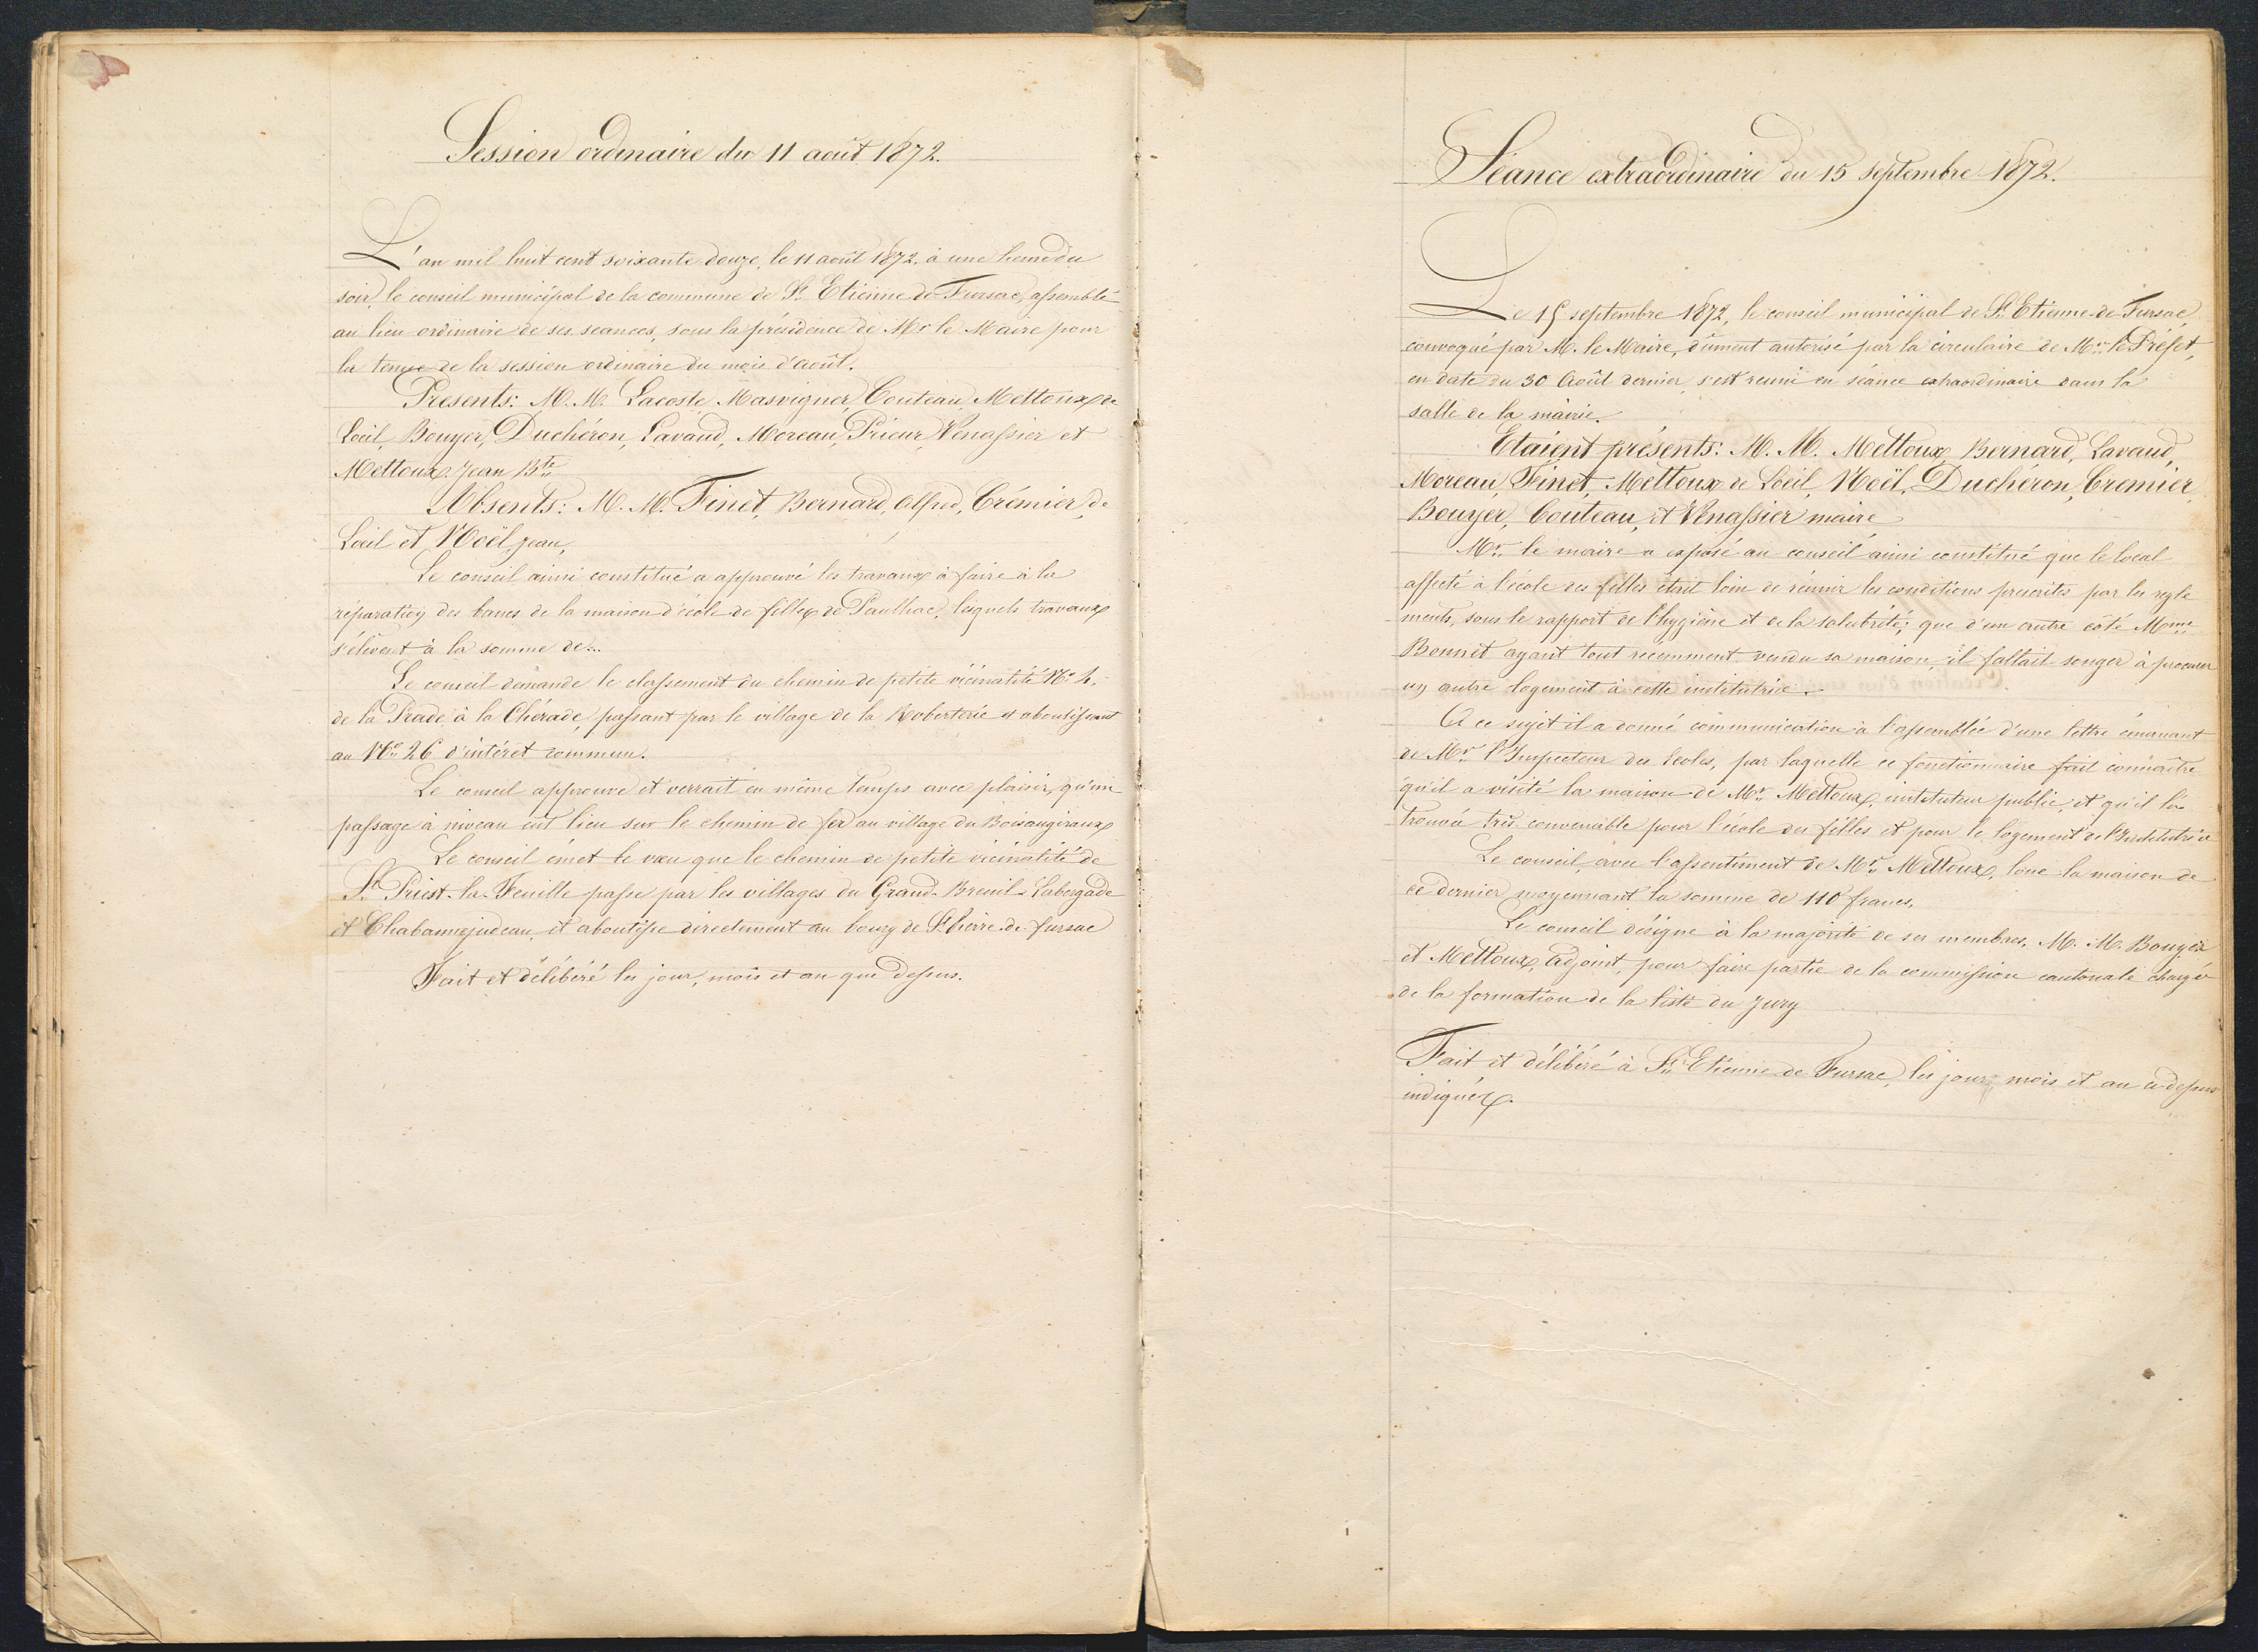 Session ordinaire du 11 août 1872.
L'an mil huit cent soixante douze, le 11 août 1872, à une heure du
soir, le conseil municipal de la commune de St Etienne de Fursac, assemblé
au lieu ordinaire de ses seances, sous la présidence de Mr le Maire pour
la tenue de la session ordinaire du mois d'août.
Presents: M. M. Lacoste, Masvigner, Couteau, Mettoux de
Loeil, Bouyer, Duchéron, Lavaud, Moreau, Prieur, Vénassier et
Mettoux Jean Bte
Absents: M. M. Finet, Bernard, Alfred, Crémier, de
Loeil et Noël Jean,
Le conseil ainsi constitué a approuvé les travaux à faire à la
réparation des bancs de la maison d'école de filles de Paulhac, lesquels travaux
s'élèvent à la somme de...
Le conseil demande le classement du chemin de petite vicinalité No 4,
de la Prade à la Chérade, passant par le village de la Roberterie et aboutissant
au No 26 d'intéret commun.
Le conseil approuve et verrait en même temps avec plaisir, qu'un
passage à niveau eut lieu sur le chemin de fer au village du Boisaugiraux
Le conseil émet le voeu que le chemin de petite vicinalité de
St Priest-la-Feuille passe par les villages du Grand-Breuil-Labergade
et Chabannejudeau, et aboutisse directement au bourg de St Pierre-de-fursac
Fait et délibéré les jour, mois et an que dessus.
Séance extraordinaire du 15 septembre 1872.
Le 15 septembre 1872, le conseil municipal de St Etienne-de-Fursac,
convoqué par M. le Maire, dûment autorisé par la circulaire de Mr le Préfet,
en date du 30 Août dernier, s'est reuni en séance extraordinaire dans la
salle de la mairie.
Etaient présents: M. M. Mettoux, Bernard, Lavaud,
Moreau, Finet, Mettoux de Loeil, Noël, Duchéron, Cremier,
Bouyer, Couteau, et Vénassier maire
Mr le maire a exposé au conseil ainsi constitué que le local
affecté à l'école des filles était loin de réunir les conditions prescrites par les regle
ments, sous le rapport de l'hygiène et de la salubrité; que d'un autre côté Mme
Bonnet ayant tout recemment vendu sa maison, il fallait songer à procurer
un autre logement à cette institutrice.
A ce sujet il a donné communication à l'assemblée d'une lettre émanant
de Mr l'Inspecteur des Ecoles, par laquelle ce fonctionnaire fait connaître
qu'il a visité la maison de Mr Mettoux, instituteur public, et qu'il l'a
trouvée très convenable pour l'école des filles et pour le logement de l'Institutrice
Le conseil, avec l'assentiment de Mr Mettoux, loue la maison de
ce dernier moyennant la somme de 110 francs,
Le conseil désigne à la majorité de ses membres, M. M. Bouyer
et Mettoux, adjoint, pour faire partie de la commission cantonale chargée
de la formation de la liste du Jury
Fait et délibéré à St Etienne de Fursac, les jour, mois et an ci-dessus
indiqués.